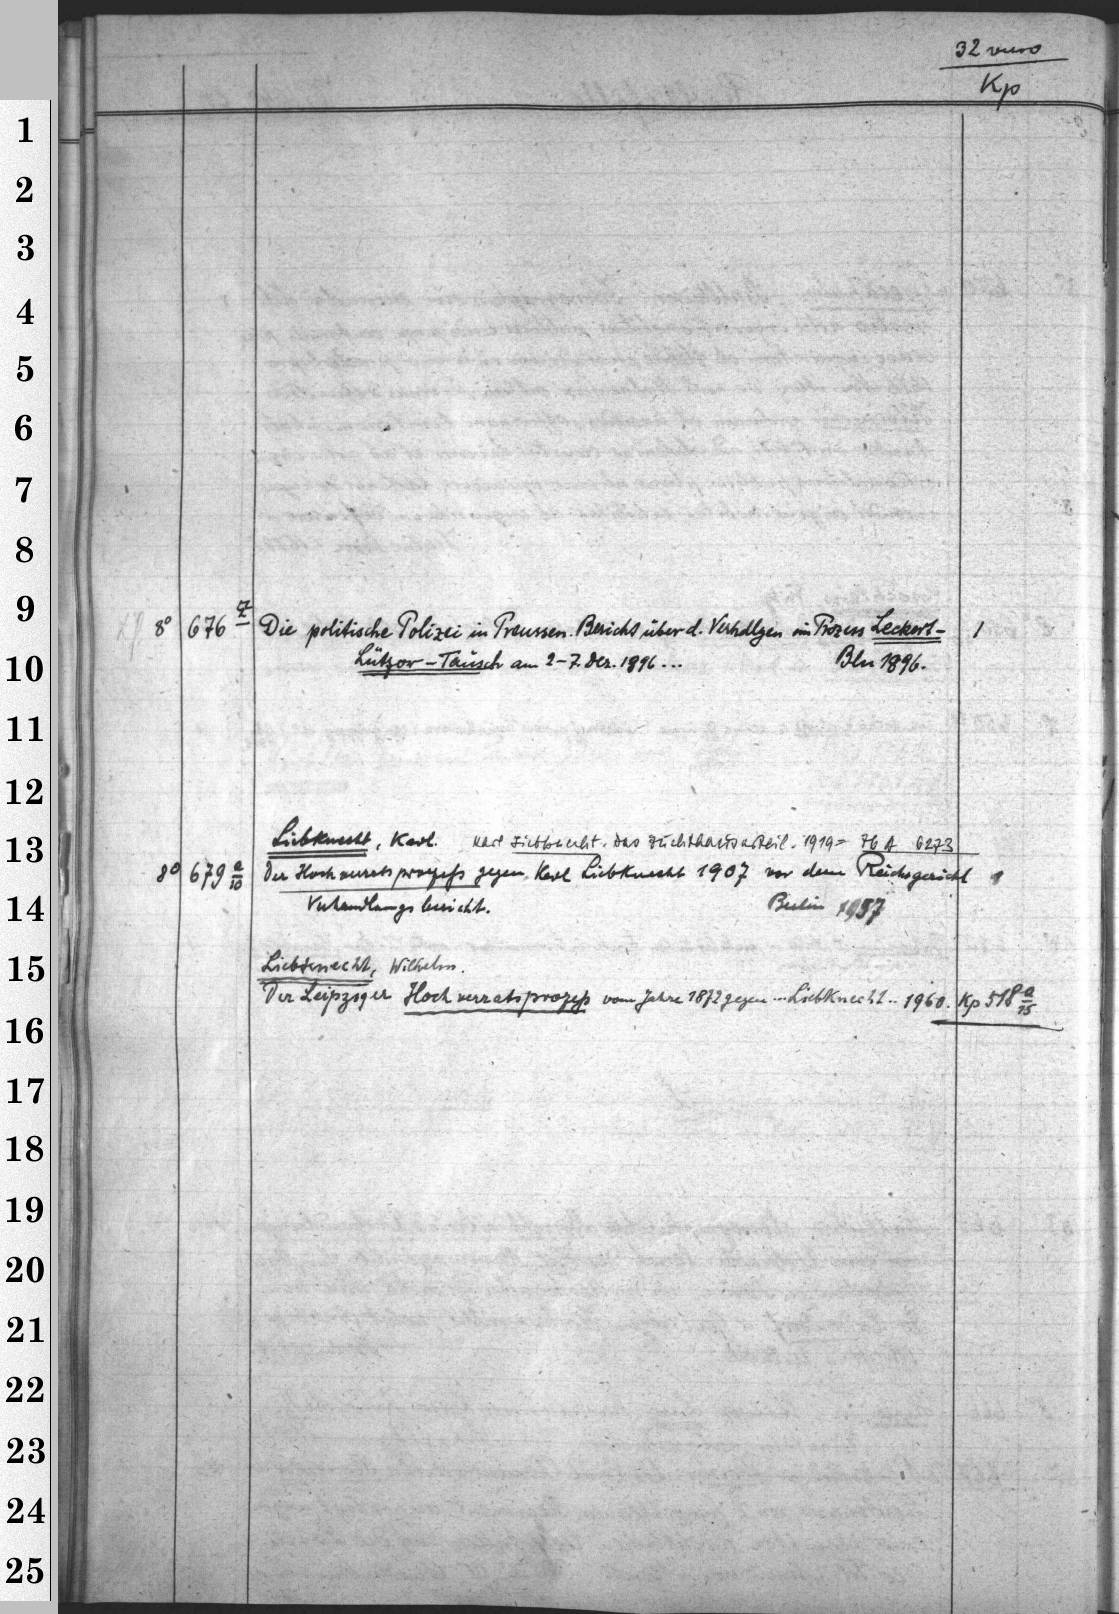 32 verso
Kp
1
2
3
4
5
6
7
8
9
8° 676 q Die politische Polizei in Preussen. Bericht über d. Verhdlgen im Prozess Leckert- 1
10
Lützow-Tausch am 2-7. Dez. 1896... Bln 1896.
11
12
13
Liebknecht, Karl. Karl Liebknecht. Das Zuchthausurteil. 1919 = 76 A 6273
8° 679 a/10 Der Hochverratsprozeß gegen Karl Liebknecht 1907 vor dem Reichsgericht 1
14
Verhandlungsbericht. Berlin 1957
15
Liebknecht, Wilhelm.
Der Leipziger Hochverratsprozeß vom Jahre 1872 gegen ... Liebknecht .. 1960. Kp 518 a/15
16
17
18
19
20
21
22
23
24
25